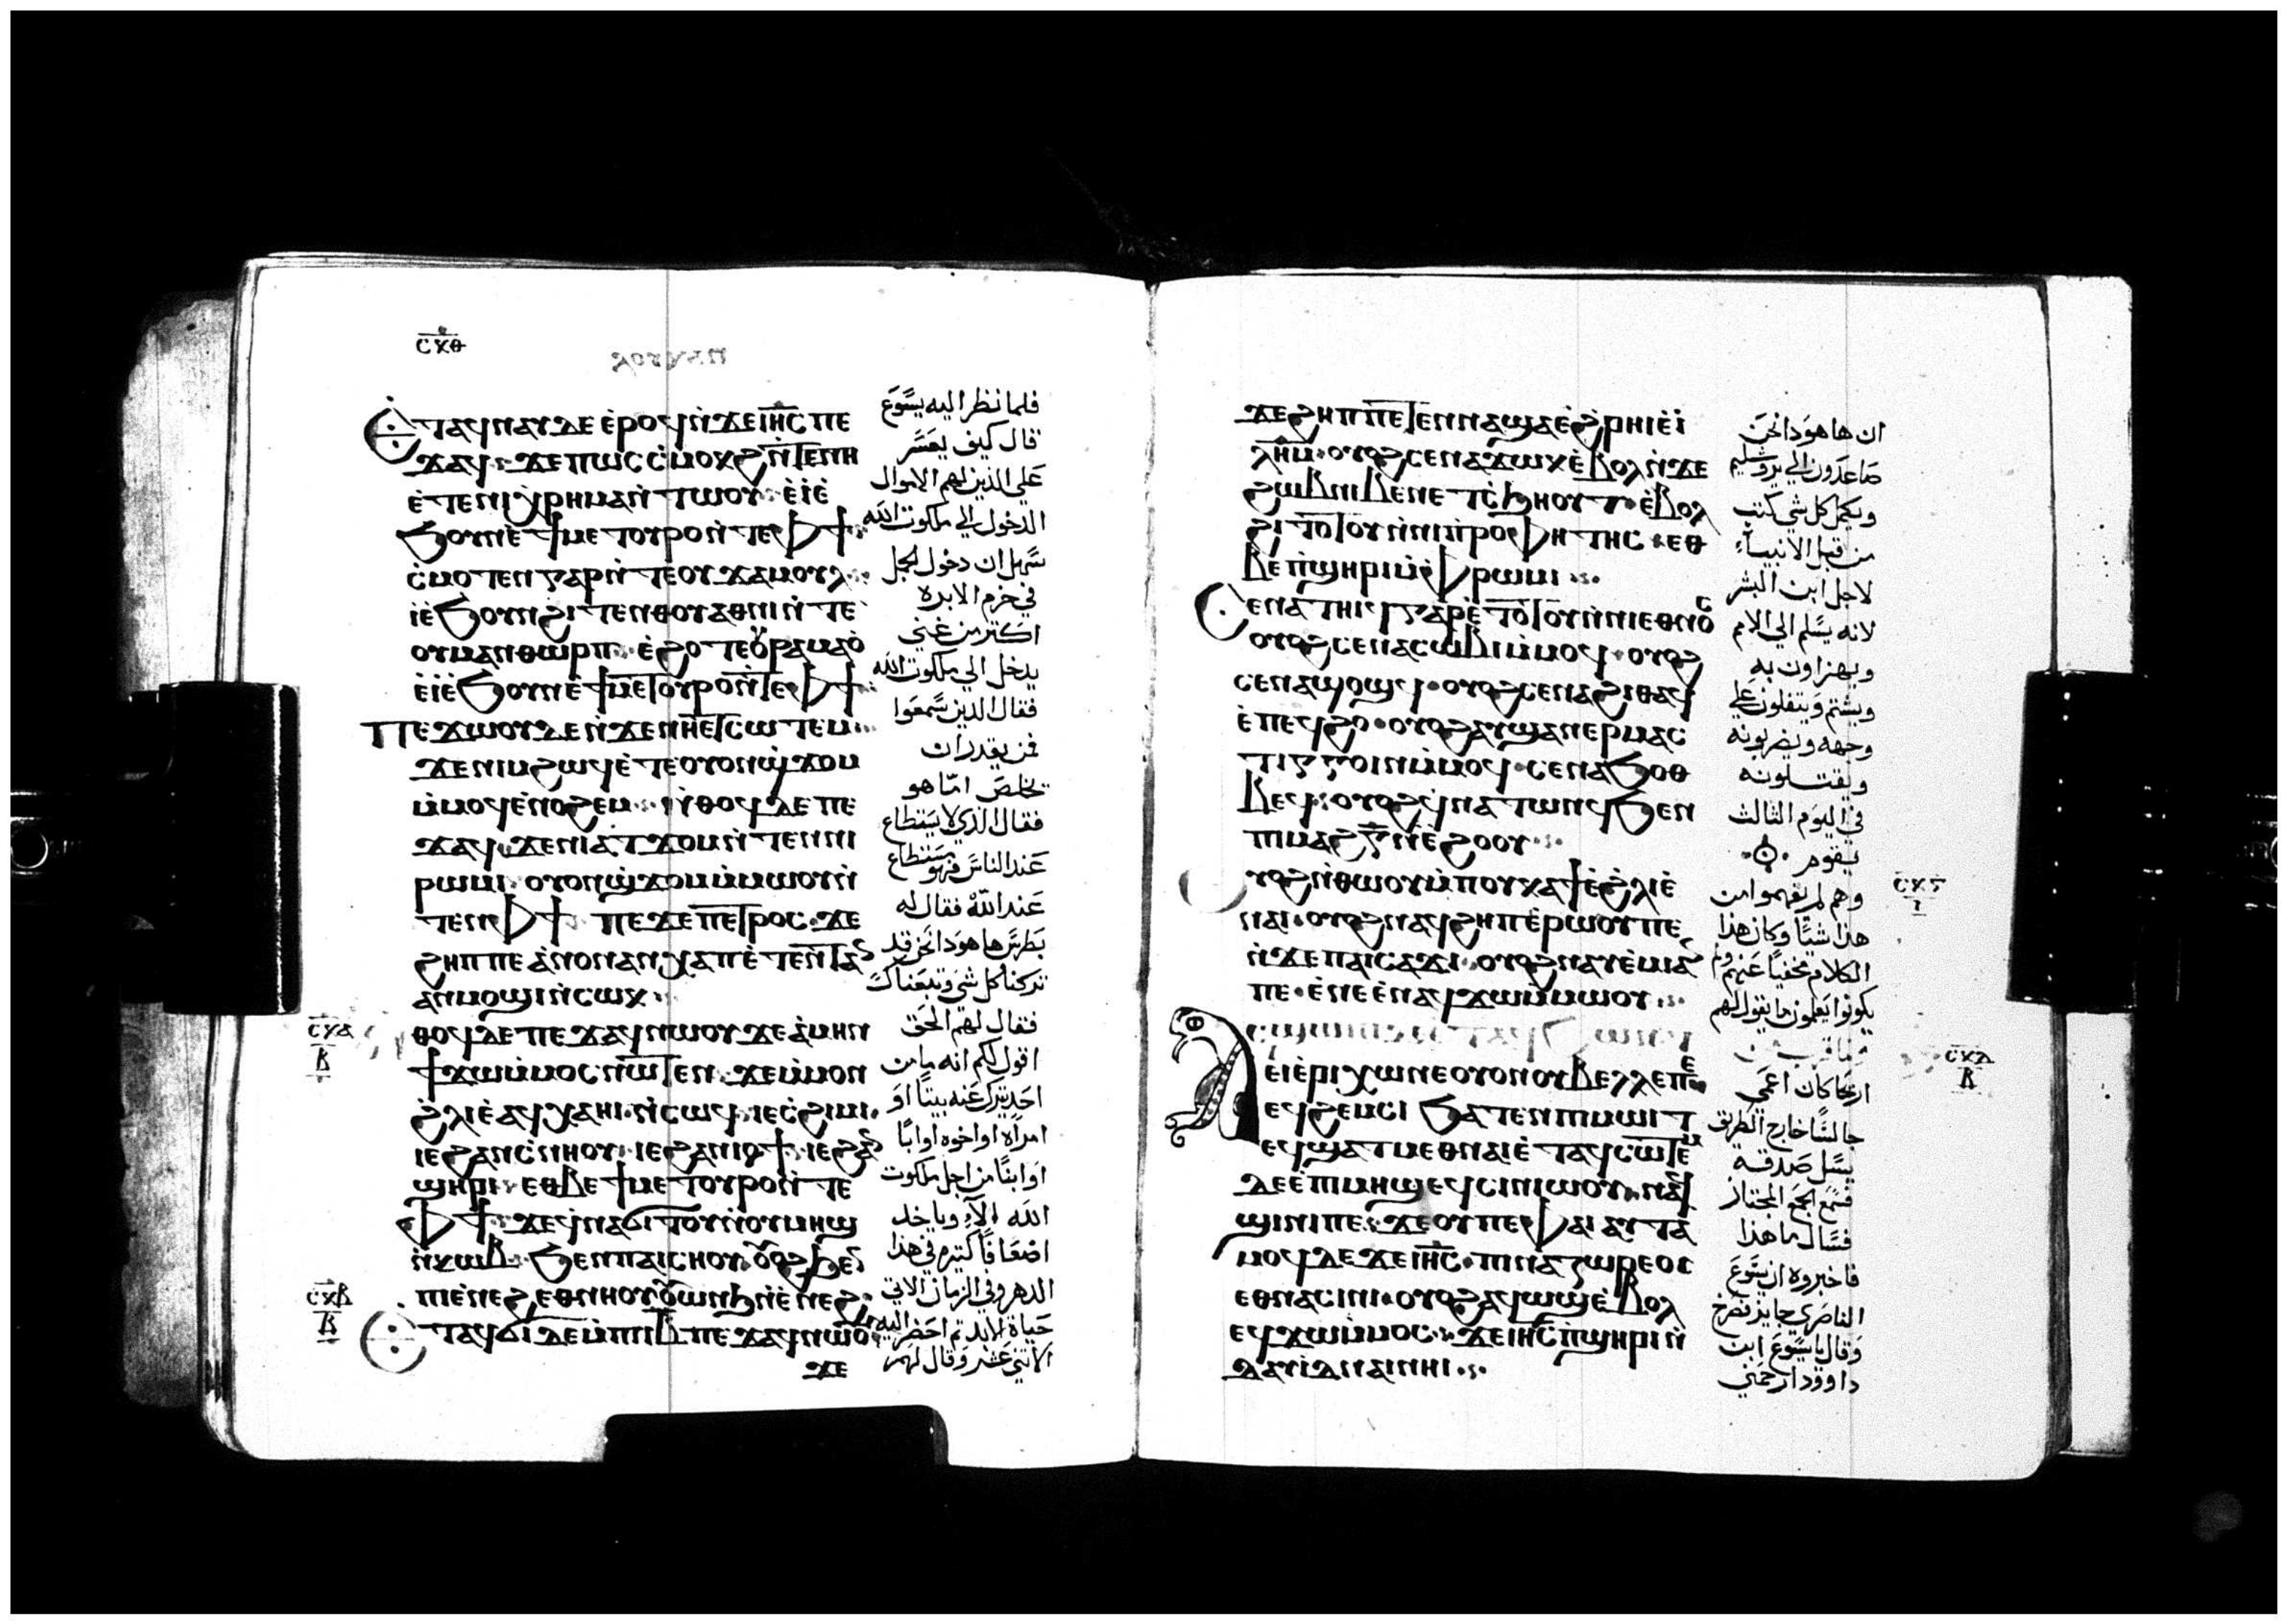 ⲥⲕⲑ
ⲗⲟⲩⲕⲁⲛ
ⲉⲧⲁϥⲛⲁⲩ ⲇⲉ ⲉ̀ⲣⲟϥ ⲛ̀ϫⲉ ⲓⲏ̅ⲥ̅ ⲡⲉ
ϫⲁϥ· ϫⲉ ⲡⲱⲥ ⲥ̀ⲙⲟⲕϩ ⲛ̀ⲧⲉⲛⲏ
ⲉ̀ⲧⲉ ⲛⲓⲭⲣⲏⲙⲁ ⲛ̀ⲧⲱⲟⲩ· ⲉ̀ⲓ̀ⲉ̀
ϧⲟⲩⲛ ⲉ̀ϯⲙⲉⲧⲟⲩⲣⲟ ⲛ̀ⲧⲉ ⲫϯ
ⲥ̀ⲙⲟⲧⲉⲛ ⲅⲁⲣ ⲛ̀ⲧⲉ ⲟⲩϫⲁⲙⲟⲩⲗ
ⲓ̀ⲉ̀ϧⲟⲩⲛ ϩⲓⲧⲉⲛ ⲑⲟⲩⲁⲑⲛⲓ ⲛ̀ⲧⲉ
ⲟⲩⲙⲁⲛⲑⲱⲣⲡ· ⲉ̀ϩⲟⲧⲉ ⲟⲩⲣⲁⲙⲁⲟ̀
ⲉ̀ⲓ̀ⲉ̀ϧⲟⲩⲛ ⲉ̀ϯⲙⲉⲧⲟⲩⲣⲟ ⲛ̀ⲧⲉ ⲫϯ
ⲡⲉϫⲱⲟⲩ ⲇⲉ ⲛ̀ϫⲉ ⲛⲏⲉⲧⲥⲱⲧⲉⲙ·
ϫⲉ ⲛⲓⲙ ϩⲱϥ ⲉ̀ⲧⲉ ⲟⲩⲟⲛ ϣϫⲟⲙ
ⲙ̀ⲙⲟϥ ⲉ̀ⲛⲟϩⲉⲙ· ⲛ̀ⲑⲟϥ ⲇⲉ ⲡⲉ
ϫⲁϥ ϫⲉ ⲛⲓⲁⲧϫⲟⲙ ⲛ̀ⲧⲉⲛ ⲛⲓ
ⲣⲱⲙⲓ· ⲟⲩⲟⲛ ϣϫⲟⲙ ⲙ̀ⲙⲱⲟⲩ ⲛ̀
ⲧⲉⲛ ⲫϯ· ⲡⲉϫⲉ ⲡⲉⲧⲣⲟⲥ· ϫⲉ
ϩⲏⲡⲡⲉ ⲁ̀ⲛⲟⲛ ⲁⲛⲭⲁ ⲡⲉ̀ⲧⲉⲛⲧⲁⲛ
ⲁⲛⲙⲟϣⲓ ⲛ̀ⲥⲱⲕ·
ⲑⲟϥ ⲇⲉ ⲡⲉϫⲁϥ ⲛⲱⲟⲩ ϫⲉ ⲁ̀ⲙⲏⲛ
ϯϫⲱ ⲙ̀ⲙⲟⲥ ⲛⲱⲧⲉⲛ· ϫⲉ ⲙ̀ⲙⲟⲛ
ϩ̀ⲗⲓ ⲉ̀ⲁϥⲭⲁ ⲏⲓ ⲛ̀ⲥⲱϥ· ⲓⲉ ⲥ̀ϩⲓⲙⲓ·
ⲓⲉ ϩⲁⲛⲥ̀ⲛⲏⲟⲩ· ⲓⲉ ϩⲁⲛⲓⲟϯ· ⲓⲉ ϩⲁⲛ
ϣⲏⲣⲓ· ⲉⲑⲃⲉ ϯⲙⲉⲧⲟⲩⲣⲟ ⲛ̀ⲧⲉ
ⲫϯ· ϫⲉ ϥ̀ⲛⲁϭⲓⲧⲟⲩ ⲛ̀ⲟⲩⲙⲏϣ
ⲛ̀ⲕⲱⲃ· ϧⲉⲛ ⲡⲁⲓⲥⲏⲟⲩ ⲟⲩⲟϩ ϧⲉⲛ
ⲡⲓⲉ̀ⲛⲉϩ ⲉⲑⲛⲏⲟⲩ ⲟⲩⲱⲛϧ ⲛ̀ⲉ̀ⲛⲉϩ
ⲉⲧⲁϥϭⲓ ⲇⲉ ⲙ̀ⲡⲓⲓ̅ⲃ̅ ⲡⲉϫⲁϥ ⲛⲱⲟⲩ
ϫⲉ
ⲥⲕⲁ
ⲃ
ⲥⲕⲃ
ⲃ
فلما نظر اليه يسوع
قال كيف يعسر
على الذين لهم الاموال
الدخول الى ملكوت الله
سهل ان دخول الجمل
في خرم الابره
اكثر من غني
يدخل الي ملكوت الله
فقال الذين سمعوا
فمن يقدر ان
يخلص اما هو
فقال الذي لا يستطاع
عند الناس فهو يستطاع
عند الله فقال له
بطرس ها هوذا نحن قد
تركنا كل شي وتبعناك
فقال لهم الحق
اقول لكم انه ما من
احد يترك عنه بيتا او
امراه او اخوه او ابا
او ابنا من اجل ملكوت
الله الا وياخذ
اضعافا كثيره في هذا
الدهر وفي الزمان الاتي
حياة الابد ثم احضر اليه
الاثني عشر وقال لهم
ϫⲉ ϩⲏⲡⲡⲉ ⲧⲉⲛⲛⲁϣⲉ ⲉ̀ϩ̀ⲣⲏⲓ ⲉ̀ⲓ̀
ⲗⲏ̅ⲙ· ⲟⲩⲟϩ ⲥⲉⲛⲁϫⲱⲕ ⲉ̀ⲃⲟⲗ ⲛ̀ϫⲉ
ϩⲱⲃ ⲛⲓⲃⲉⲛ ⲉⲧⲥ̀ϧⲏⲟⲩⲧ· ⲉ̀ⲃⲟⲗ
ϩⲓⲧⲟⲧⲟⲩ ⲛ̀ⲛⲓⲡⲣⲟⲫⲏⲧⲏⲥ· ⲉⲑ
ⲃⲉ ⲡ̀ϣⲏⲣⲓ ⲙ̀ⲫ̀ⲣⲱⲙⲓ
ⲥⲉⲛⲁⲧⲏⲓϥ ⲅⲁⲣ ⲉ̀ⲧⲟⲧⲟⲩ ⲛ̀ⲛⲓⲉⲑⲛⲟⲥ
ⲟⲩⲟϩ ⲥⲉⲛⲁⲥⲱⲃⲓ ⲙ̀ⲙⲟϥ· ⲟⲩⲟϩ
ⲥⲉⲛⲁϣⲟϣϥ· ⲟⲩⲟϩ ⲥⲉⲛⲁϩⲓⲑⲁϥ
ⲉ̀ⲡⲉϥϩⲟ· ⲟⲩⲟϩ ⲁⲩϣⲁⲛⲉⲣⲙⲁⲥ
ⲧⲓⲅⲅⲟⲓⲛ ⲙ̀ⲙⲟϥ· ⲥⲉⲛⲁϧⲟⲑ
ⲃⲉϥ· ⲟⲩⲟϩ ϥ̀ⲛⲁⲧⲱⲛϥ ϧⲉⲛ
ⲡⲓⲙⲁϩ ⲅ̅ ⲛ̀ⲉ̀ϩⲟⲟⲩ
ⲟⲩⲟϩ ⲛ̀ⲑⲱⲟⲩ ⲙ̀ⲡⲟⲩⲕⲁϯ ⲉ̀ϩ̀ⲗⲓ ⲉ̀
ⲛⲁⲓ· ⲟⲩⲟϩ ⲛⲁϥϩⲏⲡ ⲉ̀ⲣⲱⲟⲩ ⲡⲉ
ⲛ̀ϫⲉ ⲡⲁⲓⲥⲁϫⲓ· ⲟⲩⲟϩ ⲛⲁⲩⲉ̀ⲙⲓ ⲁⲛ
ⲡⲉ· ⲉ̀ⲛⲉ ⲉ̀ⲛⲁϥϫⲱ ⲙ̀ⲙⲱⲟⲩ
ⲉ̀ⲓⲉ̀ⲣⲓⲭⲱ ⲛⲉ ⲟⲩⲟⲛ ⲟⲩⲃⲉⲗⲗⲉ ⲡⲉ
ⲉϥϩⲉⲙⲥⲓ ϧⲁⲧⲉⲛ ⲡⲓⲙⲱⲓⲧ
ⲉϥϣⲁⲧⲙⲉⲑⲛⲁⲓ ⲉ̀ⲧⲁϥⲥⲱⲧⲉⲙ
ⲇⲉ ⲉ̀ⲡⲓⲙⲏϣ ⲉϥⲥⲓⲛⲓⲱⲟⲩ· ⲛⲁϥ
ϣⲓⲛⲓ ⲡⲉ· ϫⲉ ⲟⲩ ⲡⲉ ⲫⲁⲓ ⲁⲩⲧⲁ
ⲙⲟϥ ⲇⲉ ϫⲉ ⲓⲏ̅ⲥ̅· ⲡⲓⲛⲁⲍⲱⲣⲉⲟⲥ
ⲉⲑⲛⲁⲥⲓⲛⲓ· ⲟⲩⲟϩ ⲁϥⲱϣ ⲉ̀ⲃⲟⲗ
ⲉϥϫⲱ ⲙ̀ⲙⲟⲥ· ϫⲉ ⲓⲏ̅ⲥ̅ ⲡ̀ϣⲏⲣⲓ ⲛ̀
ⲇⲁⲩⲓⲇ ⲛⲁⲓ ⲛⲏⲓ
ⲥⲕⲅ
ⲓ
ⲥⲕⲇ
ⲃ
ان ها هوذا نحن
صاعدون الي يروشليم
ويكمل كل شي كتب
من قبل الانبياء
لاجل ابن البشر
لانه يسلم الي الامم
ويهزاون به
ويشتم ويتفلون علي
وجهه ويضربونه
ويقتلونه
في اليوم الثالث
يقوم
وهم لم يفهموا من
هذا شيئا وكان هذا
الكلام مخفيا عنهم ولم
يكونوا يعلمون ما يقول لهم
اريحا كان اعمي
جالسا خارج الطريق
يسل صدقه
فسمع الجمع المجتاز
فسال ما هذا
فاخبروه ان يسوع
الناصري جايز فصرخ
وقال يا يسوع ابن
داوود ارحمني